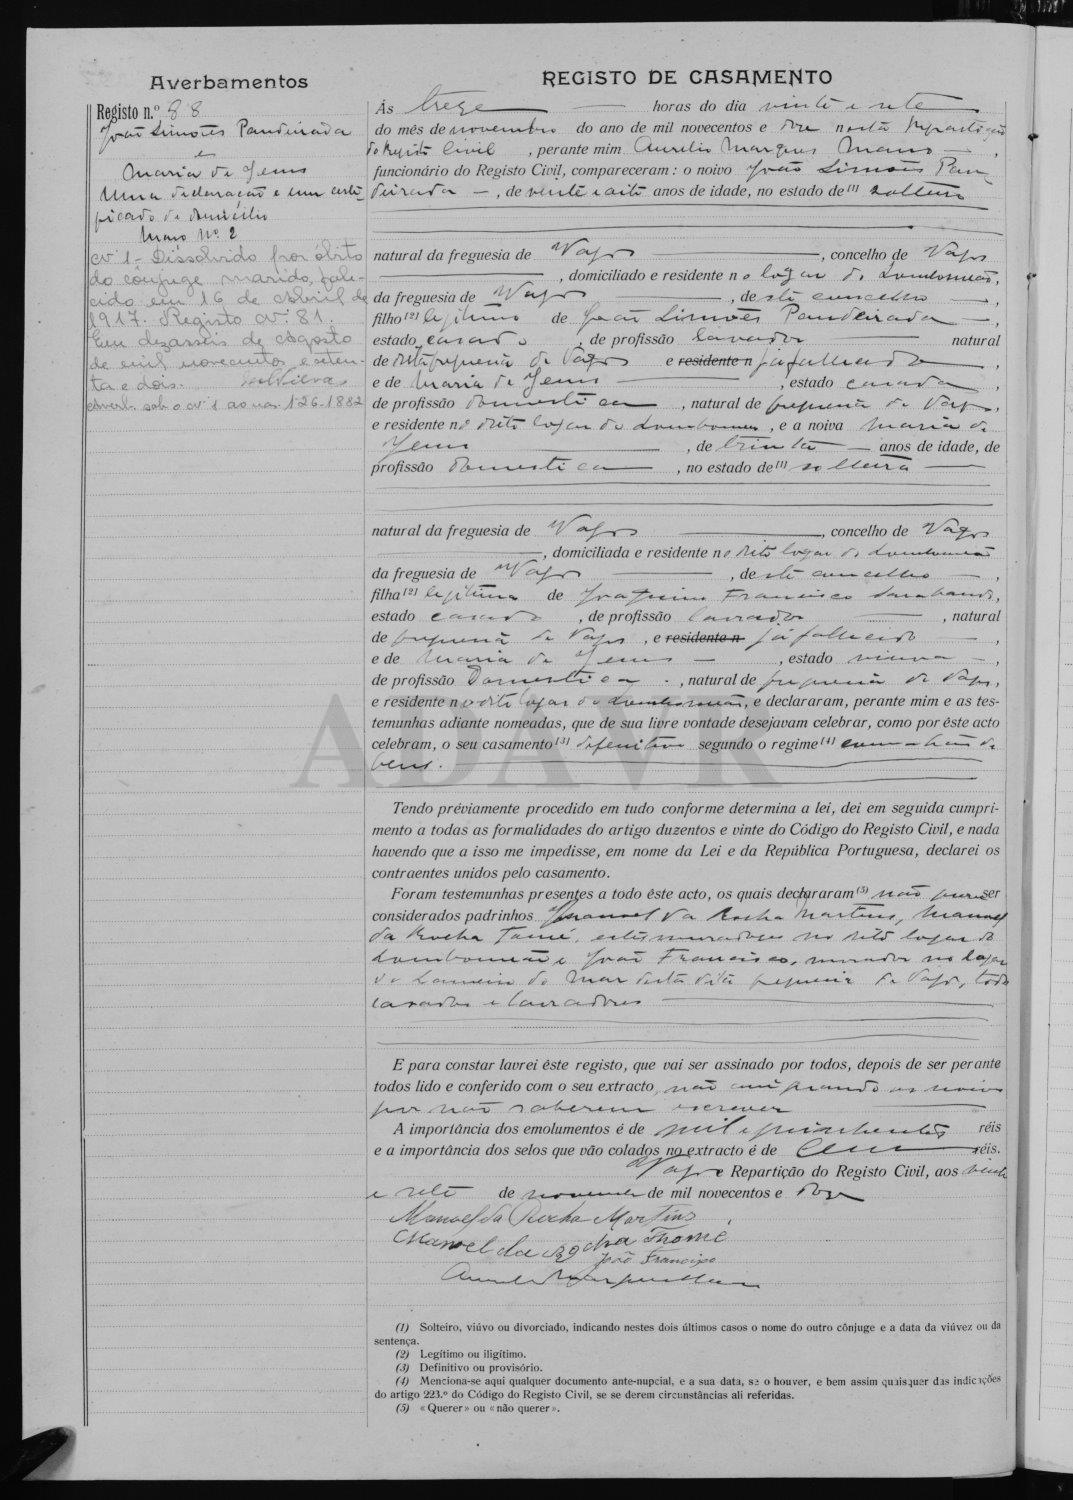 Averbamentos
Registo n.º 88
João Simões Pandeirada
e
Maria de Jesus
Uma declaração e um certi-
ficado de domicílio
Maço Nº 2
Nº 1 - Dissolvido por óbito
do cônjuge marido, fale-
cido em 16 de Abril de
1917. Registo nº 81.
Em dezasseis de Agosto
de mil novecentos e seten-
ta e dois.
Averb. sob o nº 1 ao n.º 126.1882
REGISTO DE CASAMENTO
Ás treze horas do dia vinte e sete
do mês de novembro do ano de mil novecentos e doze nesta Repartição
do Registo Civil, perante mim Aurelio Marques Mano,
funcionário do Registo Civil, compareceram: o noivo João Simões Pan-
deirada, de vinte e oito anos de idade, no estado de (1) solteiro
natural da freguesia de Vagos, concelho de Vagos
, domiciliado e residente no logar do Lombomeão,
da freguesia de Vagos, deste concelho,
filho (2) legitimo de João Simões Pandeirada,
estado casado, de profissão lavrador natural
de desta freguesia de Vagos e residente n já fallecido,
e de Maria de Jesus, estado casada,
de profissão domestica, natural de freguesia de Vagos,
e residente no dito logar do Lombomeão, e a noiva Maria de
Jesus, de trinta anos de idade, de
profissão domestica, no estado de (1) solteira
natural da freguesia de Vagos, concelho de Vagos
, domiciliada e residente no dito logar do Lombomeão
da freguesia de Vagos, deste concelho,
filha (2) legitima de Joaquim Francisco Sarabando,
estado casado, de profissão lavrador, natural
de freguesia de Vagos, e residente n já fallecido,
e de Maria de Jesus, estado viuva,
de profissão Domestica, natural de freguesia de Vagos,
e residente no dito logar do Lombomeão, e declararam, perante mim e as tes-
temunhas adiante nomeadas, que de sua livre vontade desejavam celebrar, como por êste acto
celebram, o seu casamento (3) definitivo segundo o regime (4) comunhão de
bens.
ADAVR
Tendo préviamente procedido em tudo conforme determina a lei, dei em seguida cumpri-
mento a todas as formalidades do artigo duzentos e vinte do Código do Registo Civil, e nada
havendo que a isso me impedisse, em nome da Lei e da República Portuguesa, declarei os
contraentes unidos pelo casamento.
Foram testemunhas presentes a todo êste acto, os quais declararam (5) não querer ser
considerados padrinhos Manoel da Rocha Martins, Manoel
da Rocha Tomé, estes moradores no dito logar do
Lombomeão e João Francisco, morador no logar
do Lameiro do Mar desta dita freguesia de Vagos, todos
casados e lavradores
E para constar lavrei êste registo, que vai ser assinado por todos, depois de ser perante
todos lido e conferido com o seu extracto, não assignando os noivos
por não saberem escrever
A importância dos emolumentos é de mil e quinhentos réis
e a importância dos selos que vão colados no extracto é de Cem réis.
Vagos e Repartição do Registo Civil, aos vinte
e sete de novembro de mil novecentos e doze
Manoel da Rocha Martins
Manoel da Rocha Thomé
João Francisco
Aurelio Marques Mano
(1) Solteiro, viúvo ou divorciado, indicando nestes dois últimos casos o nome do outro cônjuge e a data da viúvez ou da
sentença.
(2) Legítimo ou iligítimo.
(3) Definitivo ou provisório.
(4) Menciona-se aqui qualquer documento ante-nupcial, e a sua data, se o houver, e bem assim quaisquer das indicações
do artigo 223.º do Código do Registo Civil, se se derem circunstâncias ali referidas.
(5) «Querer» ou «não querer».